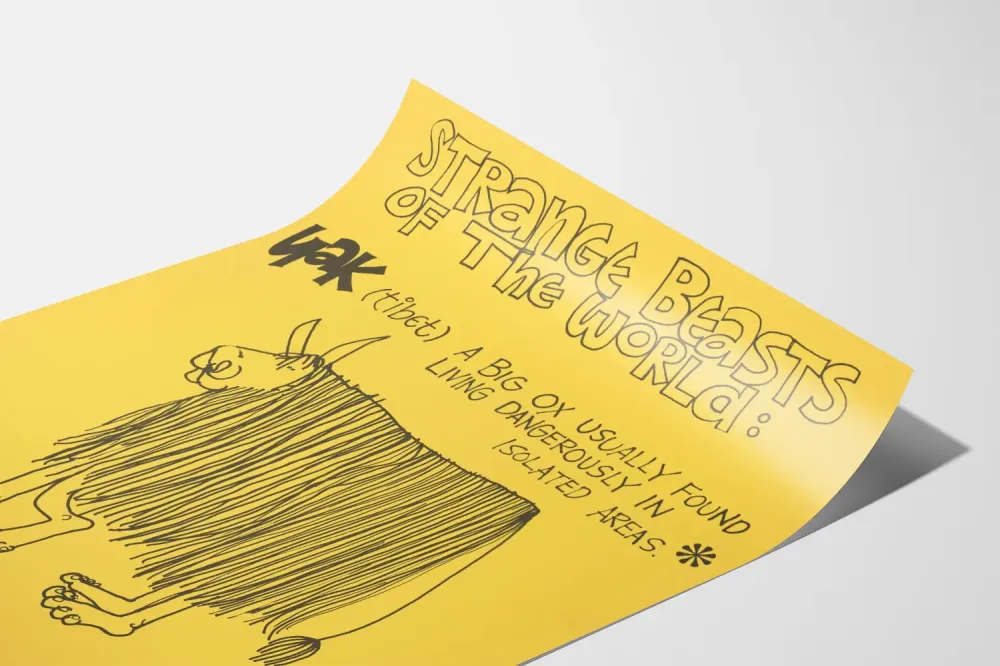 STRaNGE BEaSTS
OF The WORLd:
yak
(tibet) A BIG OX USUALLY FOUND
LIVING DANGEROUSLY IN
ISOLATED AREAS.